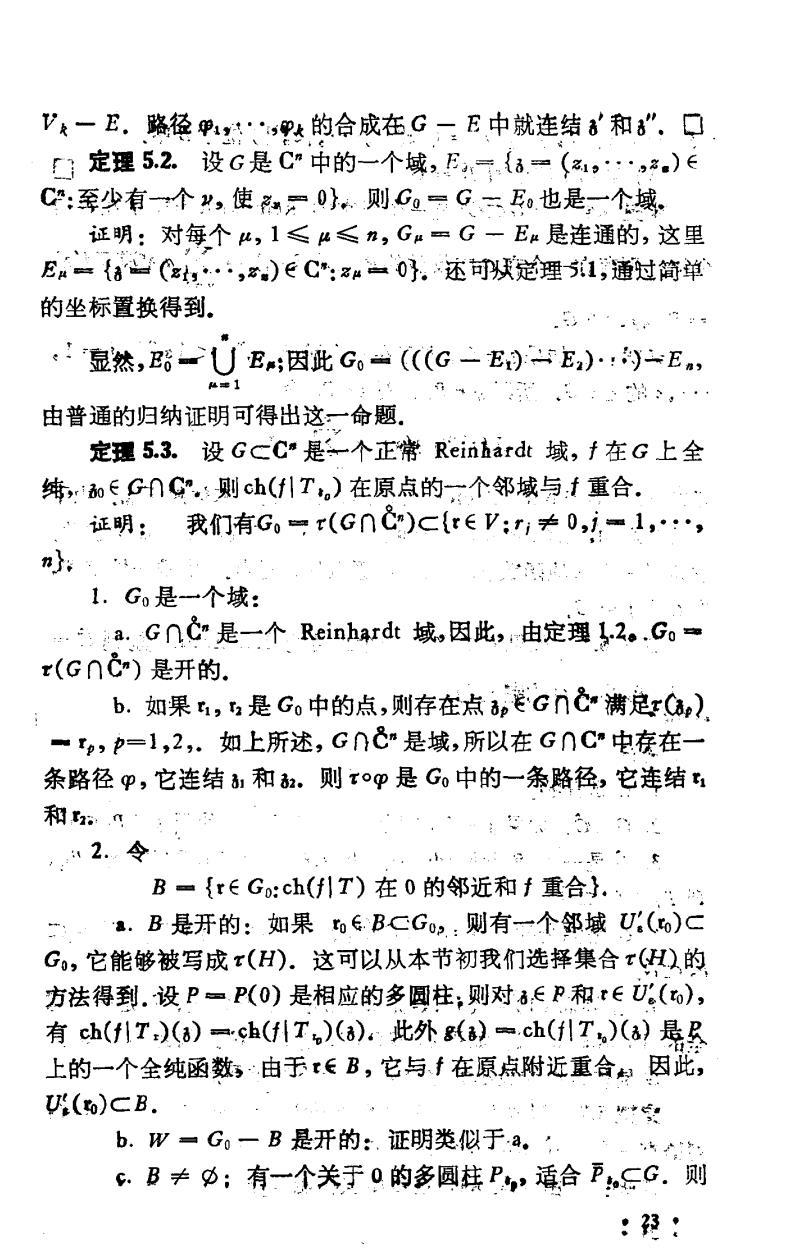 V_k − E. 路径 φ₁,⋯,φ_k 的合成在 G − E 中就连结 𝔷′ 和 𝔷″. □
定理 5.2. 设 G 是 Cⁿ 中的一个域, E₀ = {𝔷 = (z₁,⋯,zₙ) ∈
Cⁿ: 至少有一个 ν, 使 z_ν = 0}. 则 G₀ = G − E₀ 也是一个域.
证明: 对每个 μ, 1 ≤ μ ≤ n, G_μ = G − E_μ 是连通的, 这里
E_μ = {𝔷 = (z₁,⋯,zₙ) ∈ Cⁿ: z_μ = 0}. 还可从定理 5.1, 通过简单
的坐标置换得到.
显然, E₀ = ⋃_{μ=1}^{n} E_μ; 因此 G₀ = (((G − E₁) − E₂)⋯) − Eₙ,
由普通的归纳证明可得出这一命题.
定理 5.3. 设 G⊂Cⁿ 是一个正常 Reinhardt 域, f 在 G 上全
纯, 𝔷₀ ∈ G∩C̊ⁿ. 则 ch(f|T_{𝔷₀}) 在原点的一个邻域与 f 重合.
证明: 我们有 G₀ = τ(G∩C̊ⁿ)⊂{𝔯 ∈ V: r_j ≠ 0, j = 1,⋯,
n}.
1. G₀ 是一个域:
a. G∩C̊ⁿ 是一个 Reinhardt 域, 因此, 由定理 1.2. G₀ =
τ(G∩C̊ⁿ) 是开的.
b. 如果 𝔯₁, 𝔯₂ 是 G₀ 中的点, 则存在点 𝔷_p ∈ G∩C̊ⁿ 满足 τ(𝔷_p)
= 𝔯_p, p=1,2,. 如上所述, G∩C̊ⁿ 是域, 所以在 G∩Cⁿ 中存在一
条路径 φ, 它连结 𝔷₁ 和 𝔷₂. 则 τ∘φ 是 G₀ 中的一条路径, 它连结 𝔯₁
和 𝔯₂.
2. 令
B = {𝔯 ∈ G₀: ch(f|T) 在 0 的邻近和 f 重合}.
a. B 是开的: 如果 𝔯₀ ∈ B⊂G₀, 则有一个邻域 U′_ε(𝔯₀)⊂
G₀, 它能够被写成 τ(H). 这可以从本节初我们选择集合 τ(H) 的
方法得到. 设 P = P(0) 是相应的多圆柱, 则对 𝔷 ∈ P 和 𝔯 ∈ U′_ε(𝔯₀),
有 ch(f|T_𝔯)(𝔷) = ch(f|T_{𝔯₀})(𝔷). 此外 g(𝔷) = ch(f|T_{𝔯₀})(𝔷) 是 P
上的一个全纯函数, 由于 𝔯 ∈ B, 它与 f 在原点附近重合. 因此,
U′_ε(𝔯₀)⊂B.
b. W = G₀ − B 是开的: 证明类似于 a.
c. B ≠ ∅: 有一个关于 0 的多圆柱 P_{𝔷₀}, 适合 P̄_{𝔷₀}⊂G. 则
• 23 •